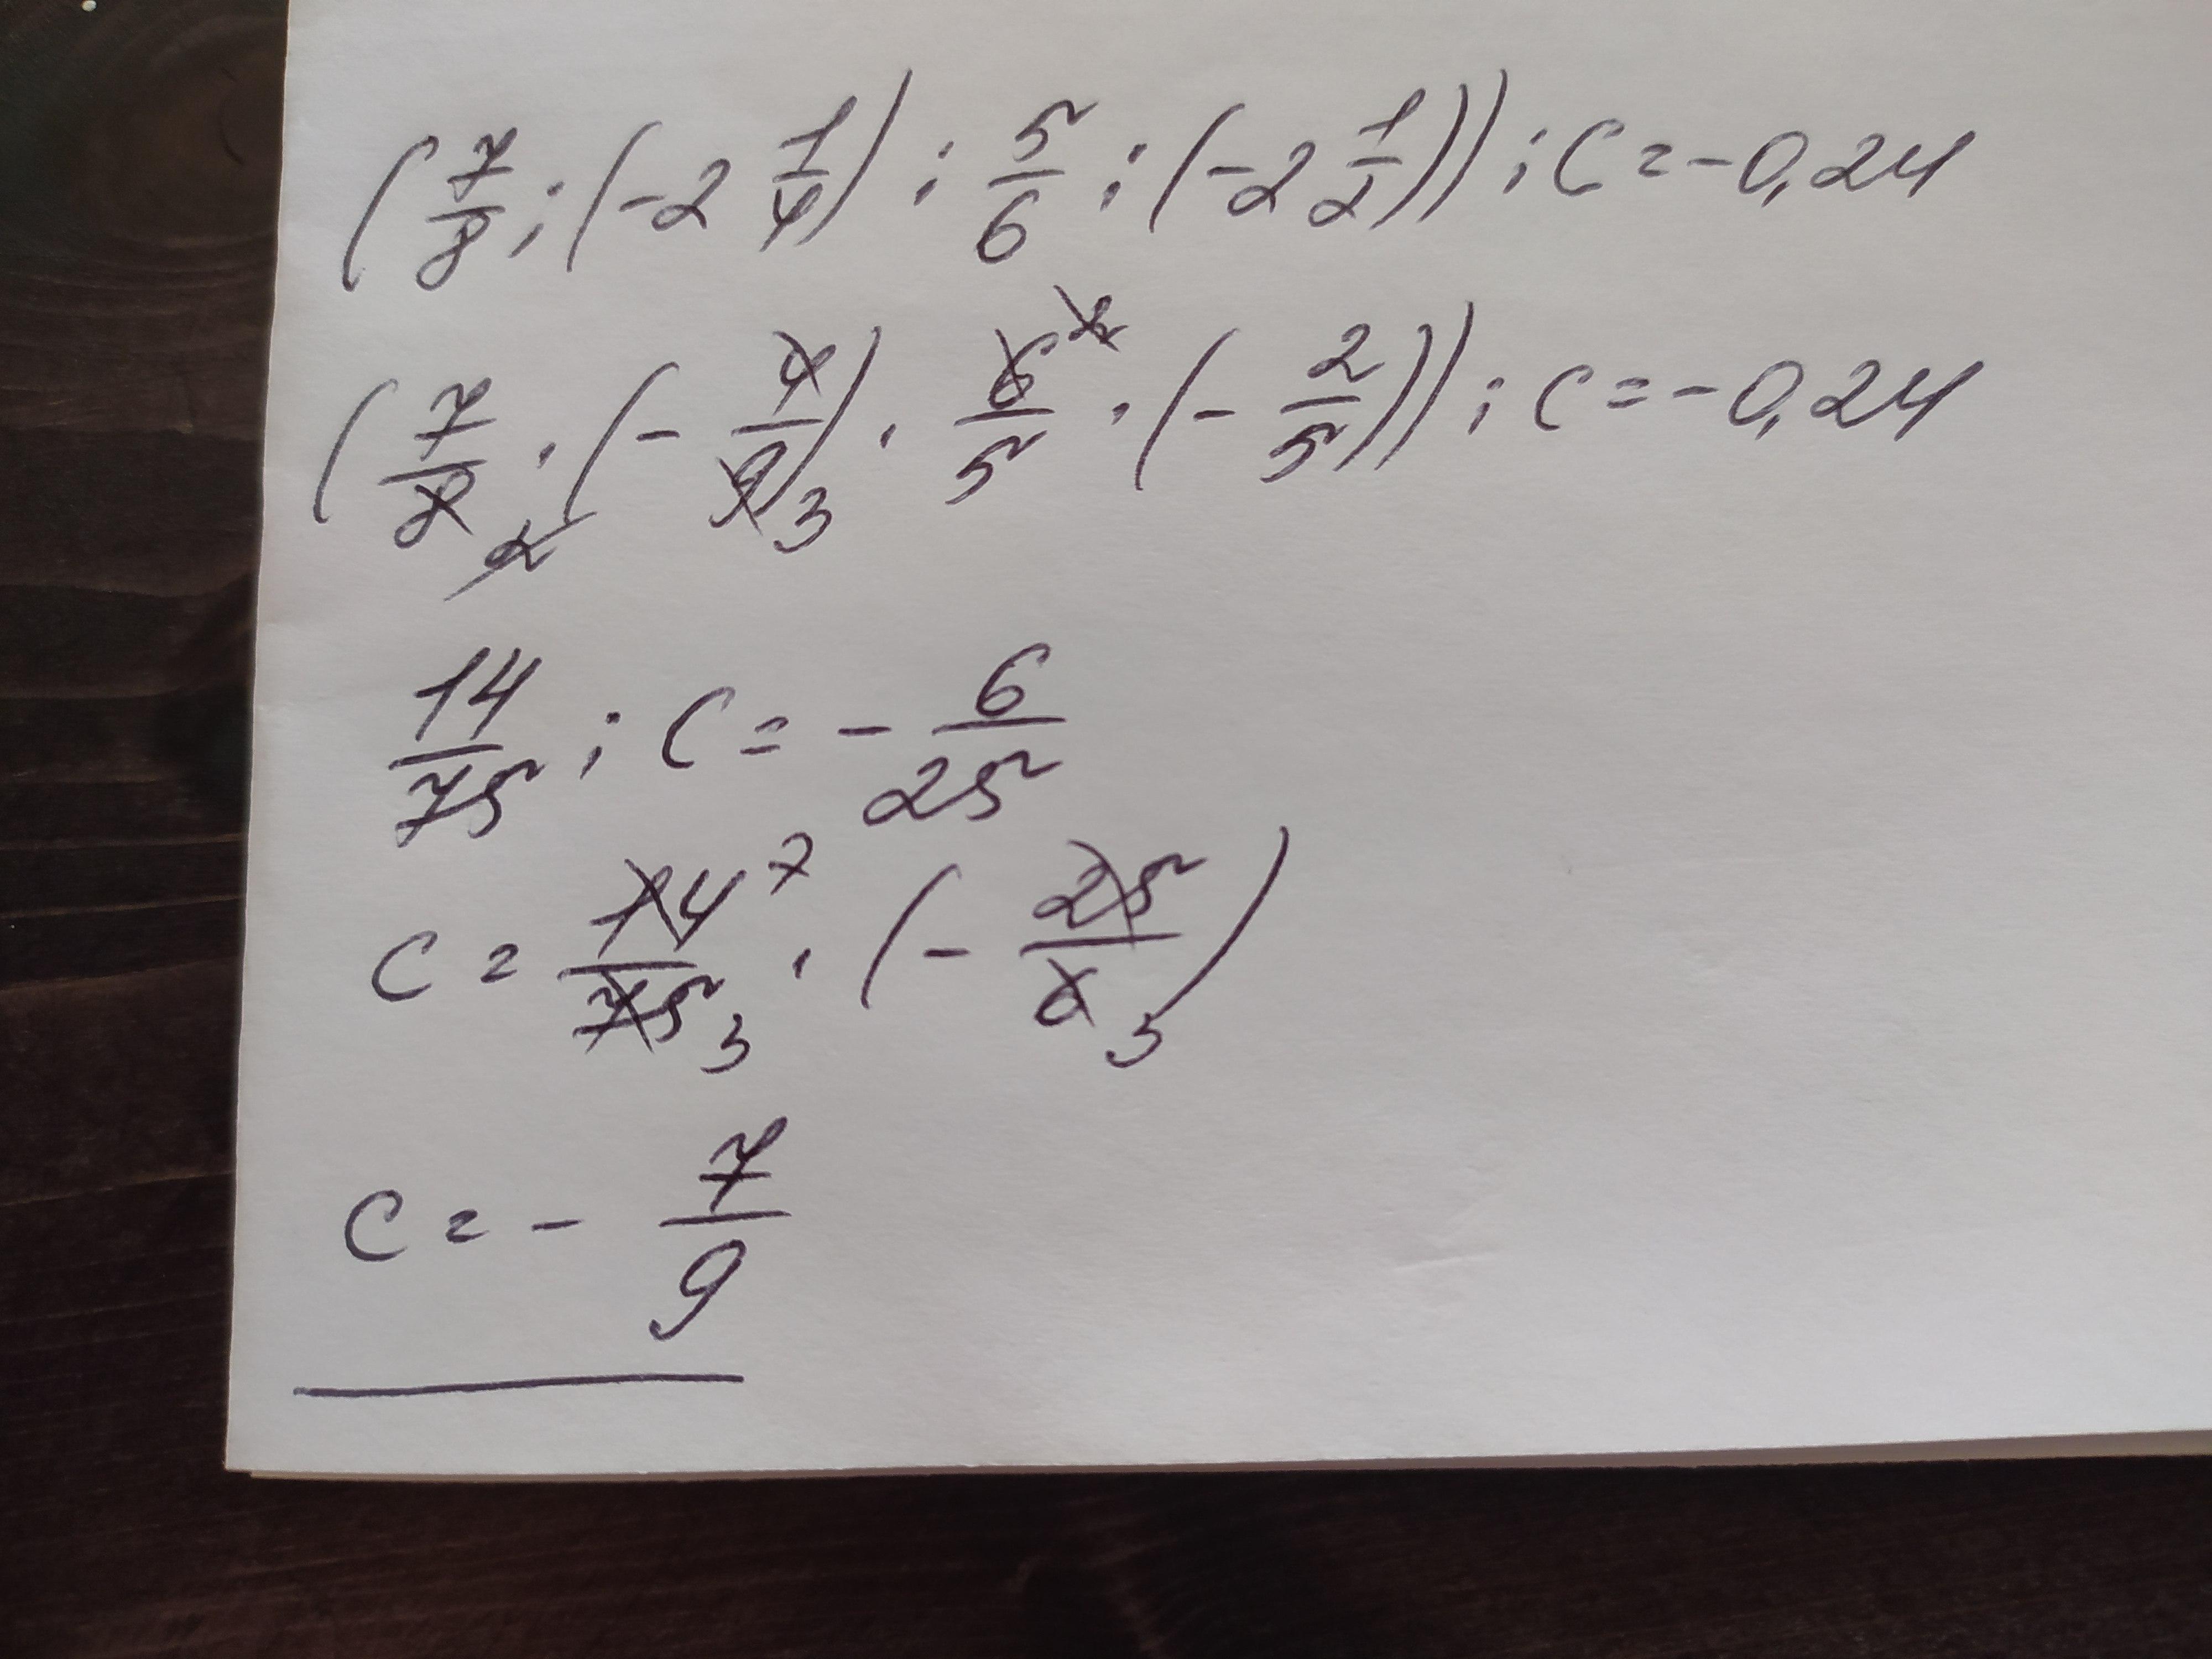 (7/8 : (-2 1/4) : 5/6 : (-2 1/2)) : c = -0,24
(7/8 2 · (-4/9 3) · 6/5 2 · (-2/5)) : c = -0,24
14/75 : c = -6/25
c = 14/75 7 3 · (-25/6 3)
c = -7/9